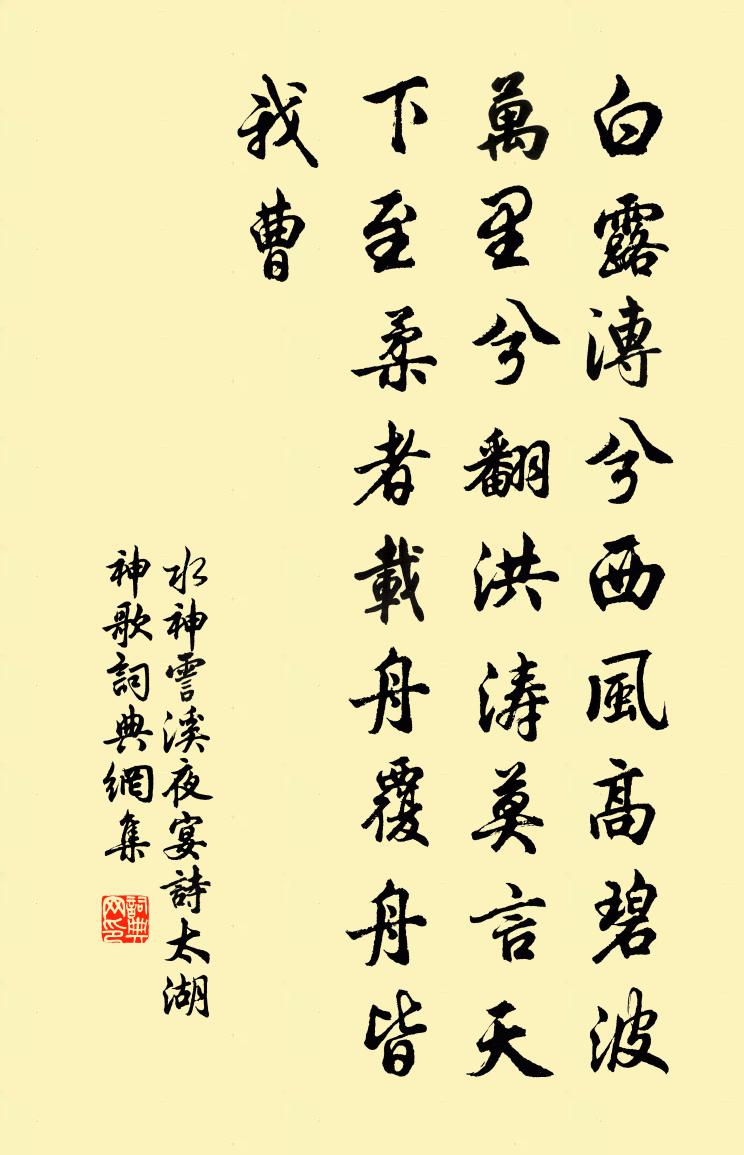 白露漙兮西風高碧波
萬里兮翻洪濤莫言天
下至柔者載舟覆舟皆
我曹
水神雲溪夜宴詩太湖
神歌詞典網集
詞典网印